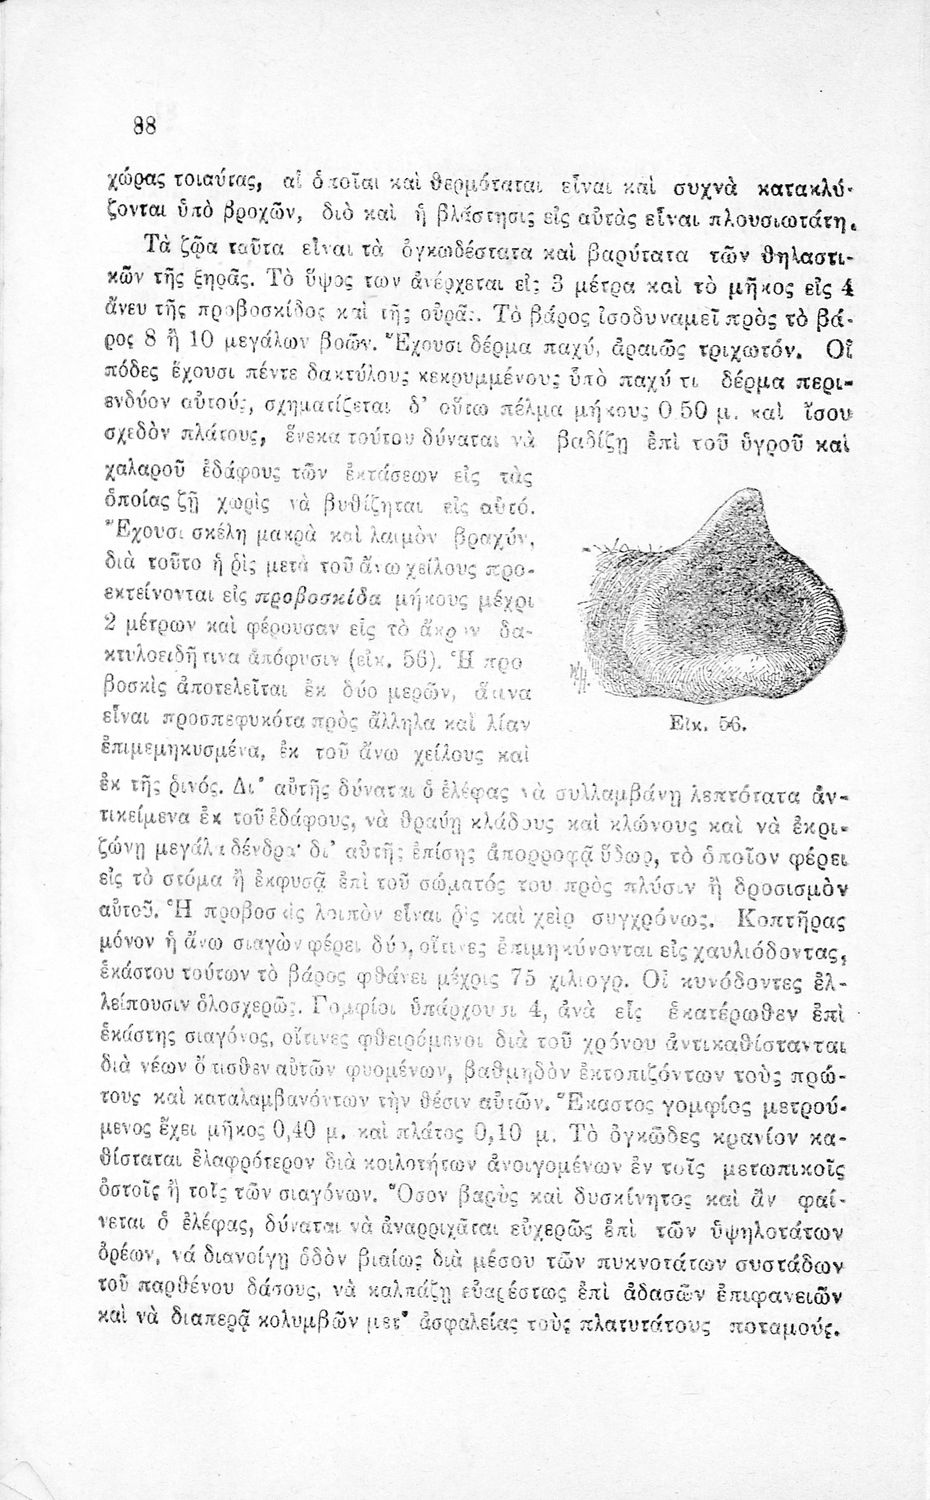 88
χώρας τοιαύτας, αἱ ὁποῖαι καὶ θερμόταται εἶναι καὶ συχνὰ κατακλύ-
ζονται ὑπὸ βροχῶν, διὸ καὶ ἡ βλάστησις εἰς αὐτὰς εἶναι πλουσιωτάτη.
Τὰ ζῷα ταῦτα εἶναι τὰ ὀγκωδέστατα καὶ βαρύτατα τῶν θηλαστι-
κῶν τῆς ξηρᾶς. Τὸ ὕψος των ἀνέρχεται εἰς 3 μέτρα καὶ τὸ μῆκος εἰς 4
ἄνευ τῆς προβοσκίδος καὶ τῆς οὐρᾶς. Τὸ βάρος ἰσοδυναμεῖ πρὸς τὸ βά-
ρος 8 ἢ 10 μεγάλων βοῶν. Ἔχουσι δέρμα παχύ, ἀραιῶς τριχωτόν. Οἱ
πόδες ἔχουσι πέντε δακτύλους κεκρυμμένους ὑπὸ παχύ τι δέρμα περι-
ενδύον αὐτούς, σχηματίζεται δ' οὕτω πέλμα μήκους 0.50 μ. καὶ ἴσου
σχεδὸν πλάτους, ἕνεκα τούτου δύναται νὰ βαδίζῃ ἐπὶ τοῦ ὑγροῦ καὶ
χαλαροῦ ἐδάφους τῶν ἐκτάσεων εἰς τὰς
ὁποίας ζῇ χωρὶς νὰ βυθίζηται εἰς αὐτό.
Ἔχουσι σκέλη μακρὰ καὶ λαιμὸν βραχύν,
διὰ τοῦτο ἡ ῥὶς μετὰ τοῦ ἄνω χείλους προ-
εκτείνονται εἰς προβοσκίδα μήκους μέχρι
2 μέτρων καὶ φέρουσαν εἰς τὸ ἄκρον δα-
κτυλοειδῆ τινα ἀπόφυσιν (εἰκ. 56). Ἡ προ
βοσκὶς ἀποτελεῖται ἐκ δύο μερῶν, ἅτινα
εἶναι προσπεφυκότα πρὸς ἄλληλα καὶ λίαν
ἐπιμεμηκυσμένα, ἐκ τοῦ ἄνω χείλους καὶ
Εἰκ. 56.
ἐκ τῆς ῥινός. Δι' αὐτῆς δύναται ὁ ἐλέφας νὰ συλλαμβάνῃ λεπτότατα ἀν-
τικείμενα ἐκ τοῦ ἐδάφους, νὰ θραύῃ κλάδους καὶ κλώνους καὶ νὰ ἐκρι-
ζώνῃ μεγάλα δένδρα· δι' αὐτῆς ἐπίσης ἀπορροφᾷ ὕδωρ, τὸ ὁποῖον φέρει
εἰς τὸ στόμα ἢ ἐκφυσᾷ ἐπὶ τοῦ σώματός του πρὸς πλύσιν ἢ δροσισμὸν
αὐτοῦ. Ἡ προβοσκὶς λοιπὸν εἶναι ῥὶς καὶ χεὶρ συγχρόνως. Κοπτῆρας
μόνον ἡ ἄνω σιαγὼν φέρει δύο, οἵτινες ἐπιμηκύνονται εἰς χαυλιόδοντας,
ἑκάστου τούτων τὸ βάρος φθάνει μέχρις 75 χιλιογρ. Οἱ κυνόδοντες ἐλ-
λείπουσιν ὁλοσχερῶς. Γομφίοι ὑπάρχουσι 4, ἀνὰ εἷς ἑκατέρωθεν ἐπὶ
ἑκάστης σιαγόνος, οἵτινες φθειρόμενοι διὰ τοῦ χρόνου ἀντικαθίστανται
διὰ νέων ὄπισθεν αὐτῶν φυομένων, βαθμηδὸν ἐκτοπιζόντων τοὺς πρώ-
τους καὶ καταλαμβανόντων τὴν θέσιν αὐτῶν. Ἕκαστος γομφίος μετρού-
μενος ἔχει μῆκος 0,40 μ. καὶ πλάτος 0,10 μ. Τὸ ὀγκῶδες κρανίον κα-
θίσταται ἐλαφρότερον διὰ κοιλοτήτων ἀνοιγομένων ἐν τοῖς μετωπικοῖς
ὀστοῖς ἢ τοῖς τῶν σιαγόνων. Ὅσον βαρὺς καὶ δυσκίνητος καὶ ἂν φαί-
νεται ὁ ἐλέφας, δύναται νὰ ἀναρριχᾶται εὐχερῶς ἐπὶ τῶν ὑψηλοτάτων
ὀρέων, νά διανοίγῃ ὁδὸν βιαίως διὰ μέσου τῶν πυκνοτάτων συστάδων
τοῦ παρθένου δάσους, νὰ καλπάζῃ εὐαρέστως ἐπὶ ἀδασῶν ἐπιφανειῶν
καὶ νὰ διαπερᾷ κολυμβῶν μετ' ἀσφαλείας τοὺς πλατυτάτους ποταμούς.